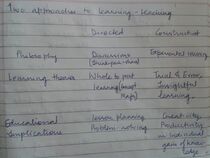 Two approaches to learning - teaching
Directed Constructivist
Philosophy Discussions Experiential learning
Learning theories Whole to part Trial & Error,
learning (concept Insightful
Maps) Learning.
Educational lesson planning Creativity,
Implications Problem-solving Productivity
individual
gain of know-
ledge